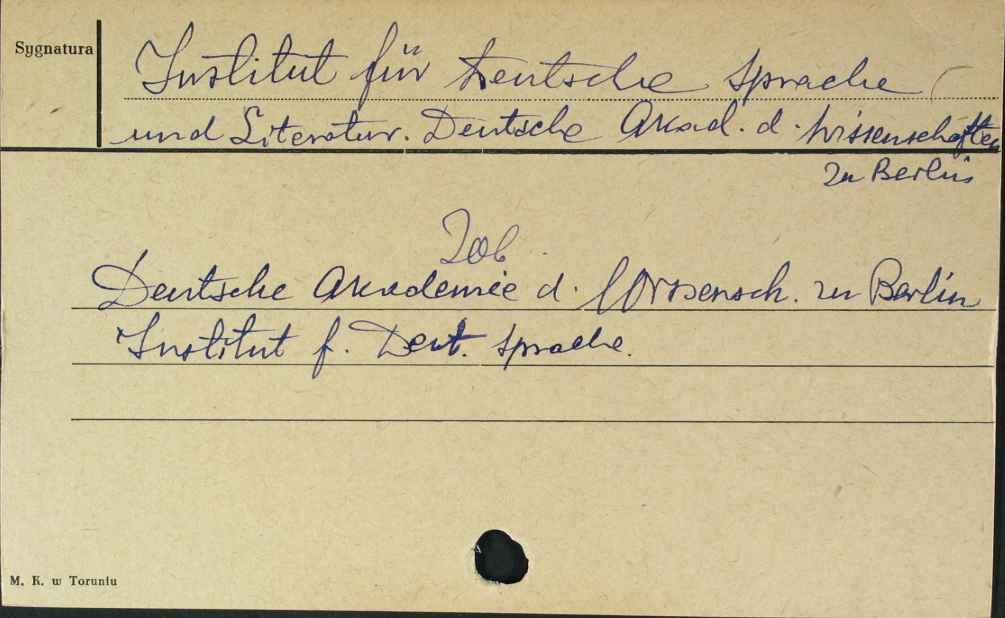 Sygnatura
Institut für Deutsche Sprache
und Literatur. Deutsche Akad. d. Wissenschaften
zu Berlin
Zob.
Deutsche Akademie d. Wissensch. zu Berlin
Institut f. Deut. Sprache.
M. K. w Toruniu